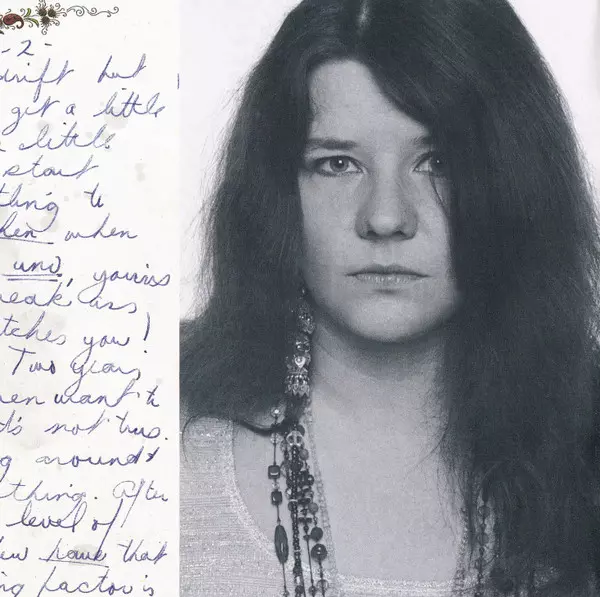 - 2 -
drift but
get a little
little
start
thing to
when
und, you're
eak ass
tches you!
Two years
en want to
t's not this.
g around &
thing. After
level of
have that
ng factor is